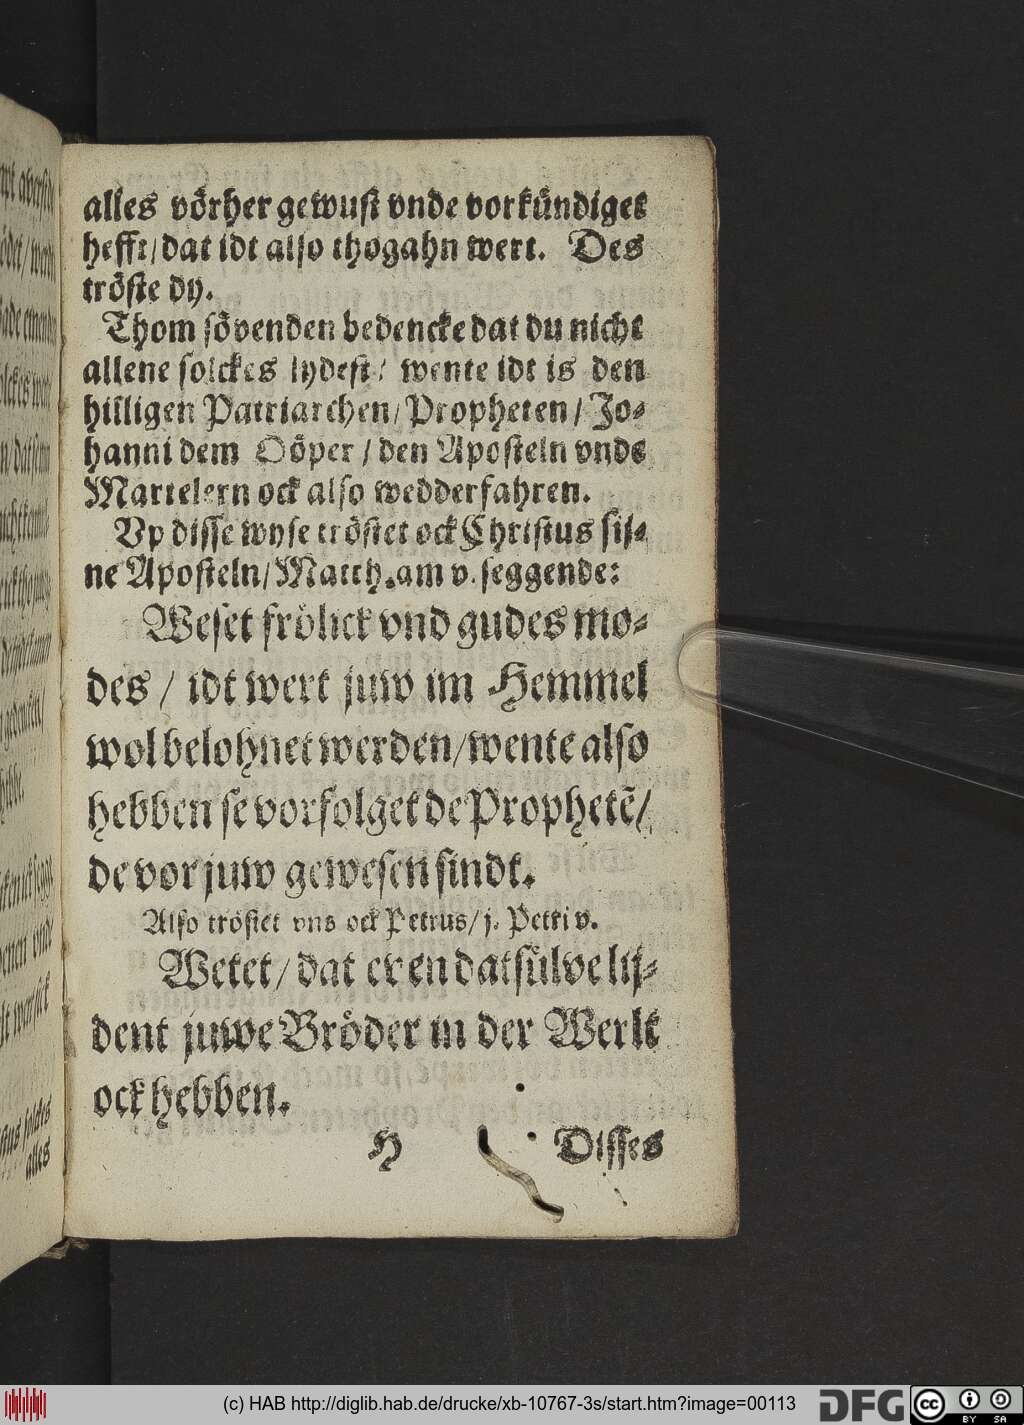 alles vörher gewust vnde vorkündiget
hefft/ dat idt also thogahn wert. Des
tröste dy.
Thom sövenden bedencke dat du nicht
allene solckes lydest/ wente idt is den
hilligen Patriarchen/ Propheten/ Jo-
hanni dem Döper/ den Aposteln vnde
Martelern ock also wedderfahren.
Vp disse wyse tröstet ock Christus sij-
ne Aposteln/ Matth. am v. seggende:
Weset frölick vnd gudes mo-
des/ idt wert juw im Hemmel
wol belohnet werden/ wente also
hebben se vorfolget de Prophetē/
de vor juw gewesen sindt.
Also tröstet vns ock Petrus/ j. Petri v.
Wetet/ dat even datsülve lij-
dent juwe Bröder in der Werlt
ock hebben.
H Disses
alles
(c) HAB http://diglib.hab.de/drucke/xb-10767-3s/start.htm?image=00113
DFG
cc BY SA